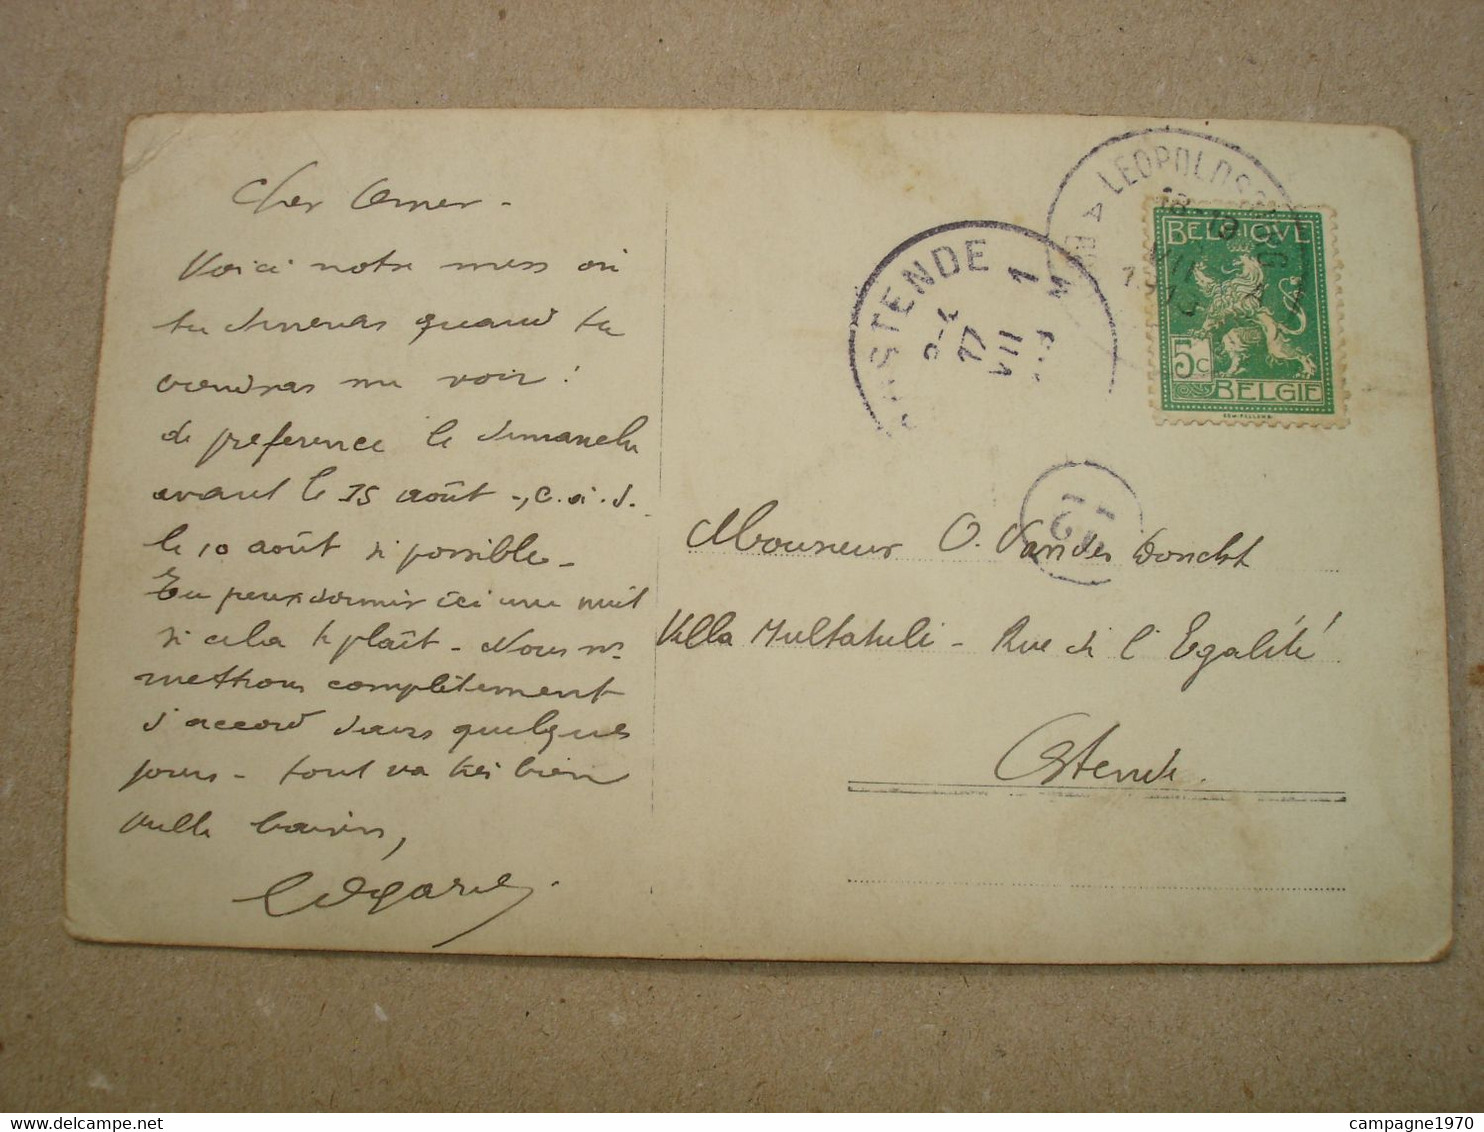 Cher Omer -
Voici notre mess où
tu dineras quand tu
viendras me voir !
de preference le dimanche
avant le 15 août -, c. à. d.
le 10 août si possible -
Tu peux dormir ici une nuit
si cela te plaît - Nous ns.
mettrons complètement
d'accord dans quelques
jours - tout va très bien
mille baisers,
Edgard.
LEOPOLDS
18-19
VII
1913
OOSTENDE 1
17
VII
BELGIQUE
5c
BELGIE
12
Monsieur O. Van der Donckt
Villa Multatuli - Rue de l'Egalité
Ostende.
campagne1970